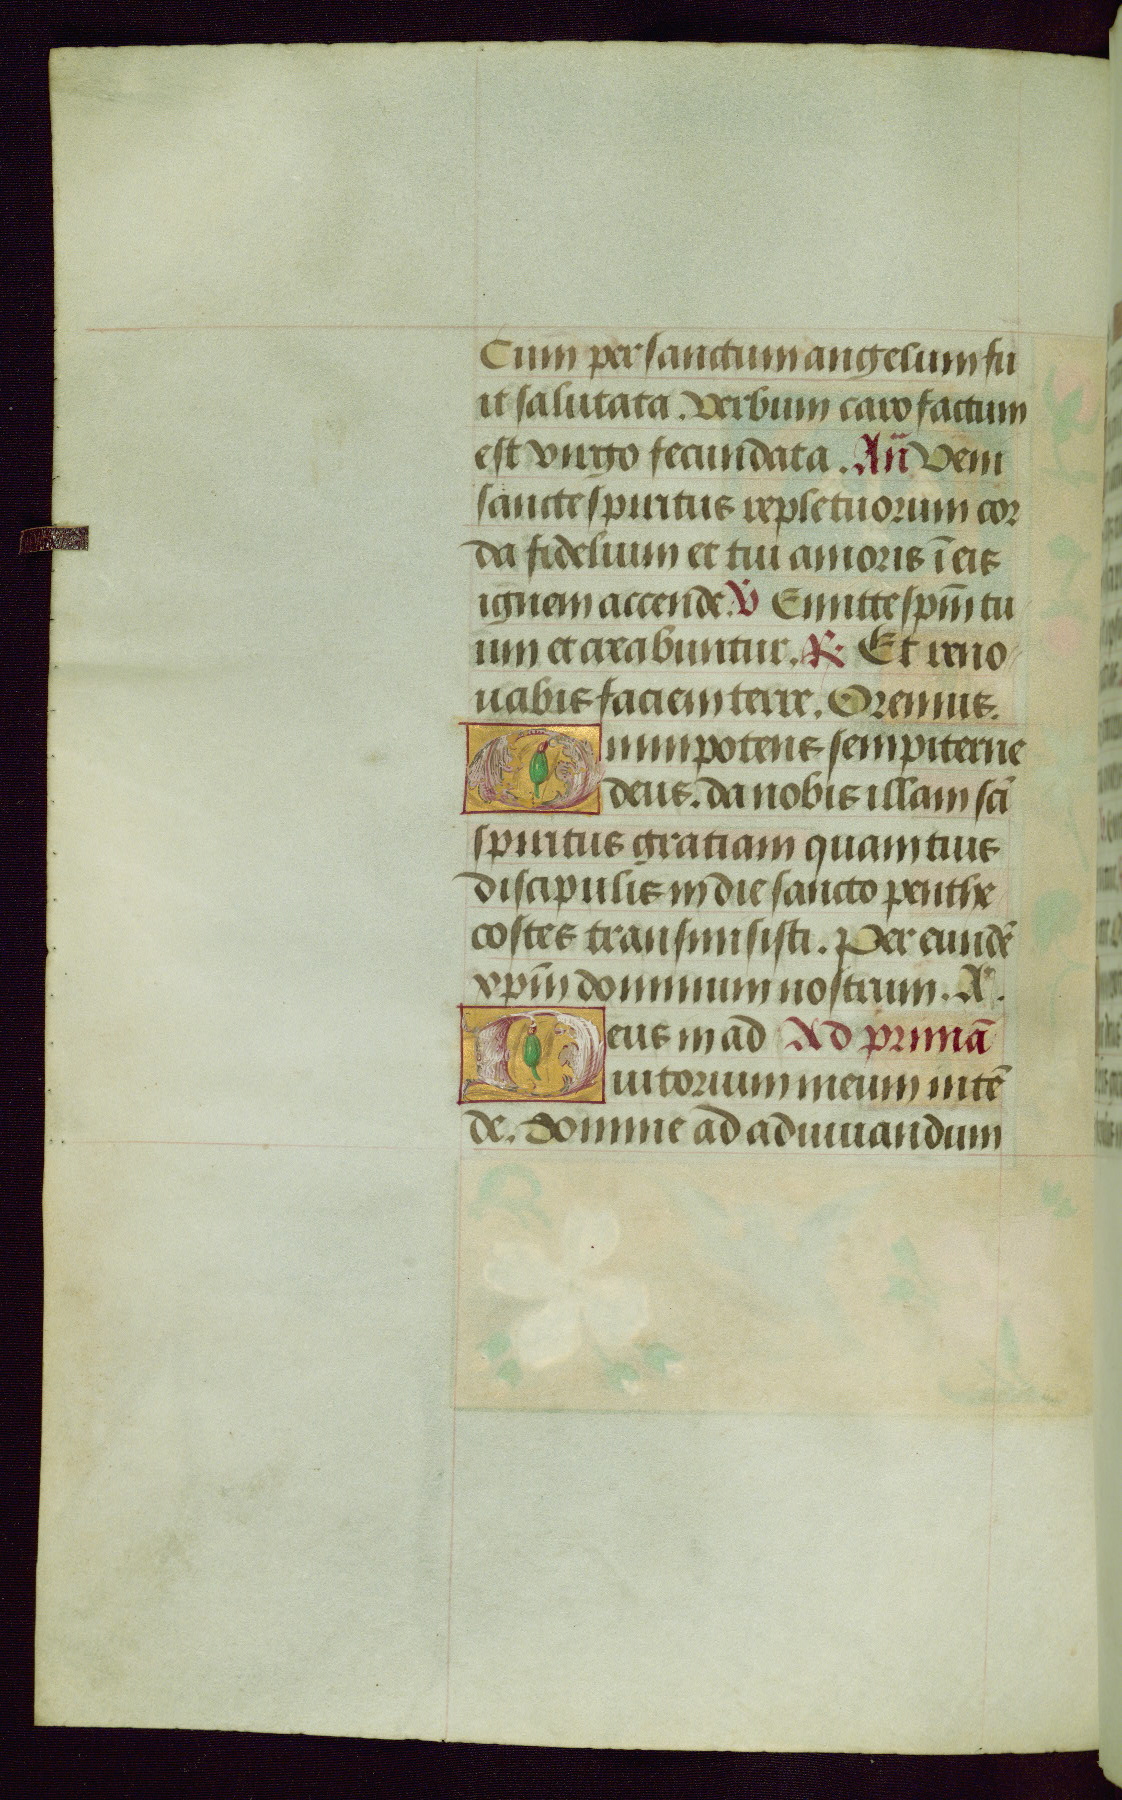 Cum per sanctum angelum fu
it salutata. verbum caro factum
est virgo fecundata. Añ Veni
sancte spiritus reple tuorum cor
da fidelium et tui amoris ī eis
ignem accende. V̄ Emitte spm̄ tu
um et creabuntur. R. Et reno
uabis faciem terre. Oremus.
Omnipotens sempiterne
deus. da nobis illam scī
spiritus gratiam quam tuis
discipulis in die sancto penthe
costes transmisisti. Per eundē
xpm̄ dominum nostrum. A.
Deus in ad Ad primā
iutorium meum intē
de. domine ad adiuuandum